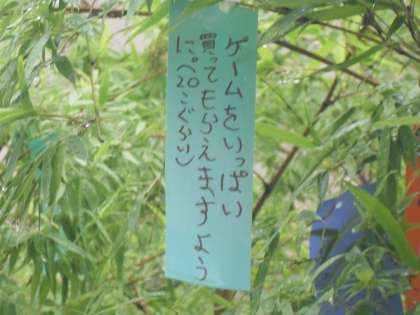 ゲームをいっぱい
買ってもらえますよう
に。(20こぐらい)